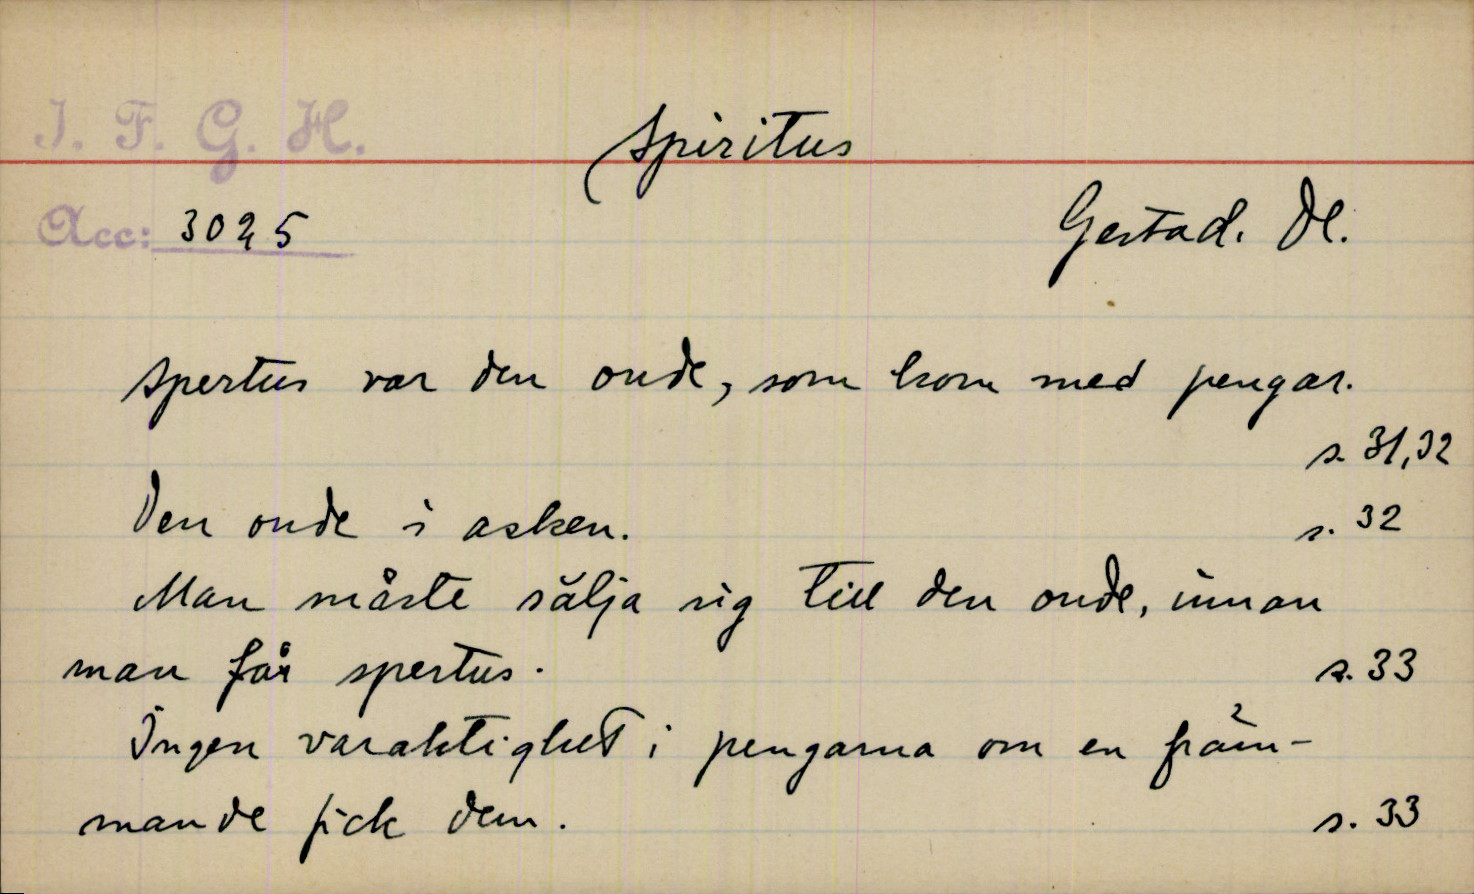 I. F. G. H.
Spiritus
Acc: 3025
Gestad. Dl.
Spertus var den onde, som kom med pengar.
s. 31,32
Den onde i asken. s. 32
Man måste sälja sig till den onde, innan
man får spertus. s. 33
Ingen varaktighet i pengarna om en främ-
mande fick dem. s. 33